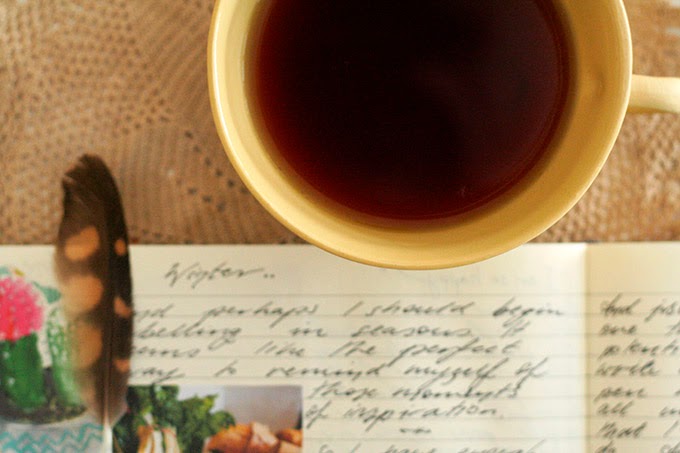 Winter..
nd perhaps I should begin
belling in seasons. It
ems like the perfect
ay to remind myself of
those moments
of inspiration.
And jus
are t
potenti
write
pen
all u
that I